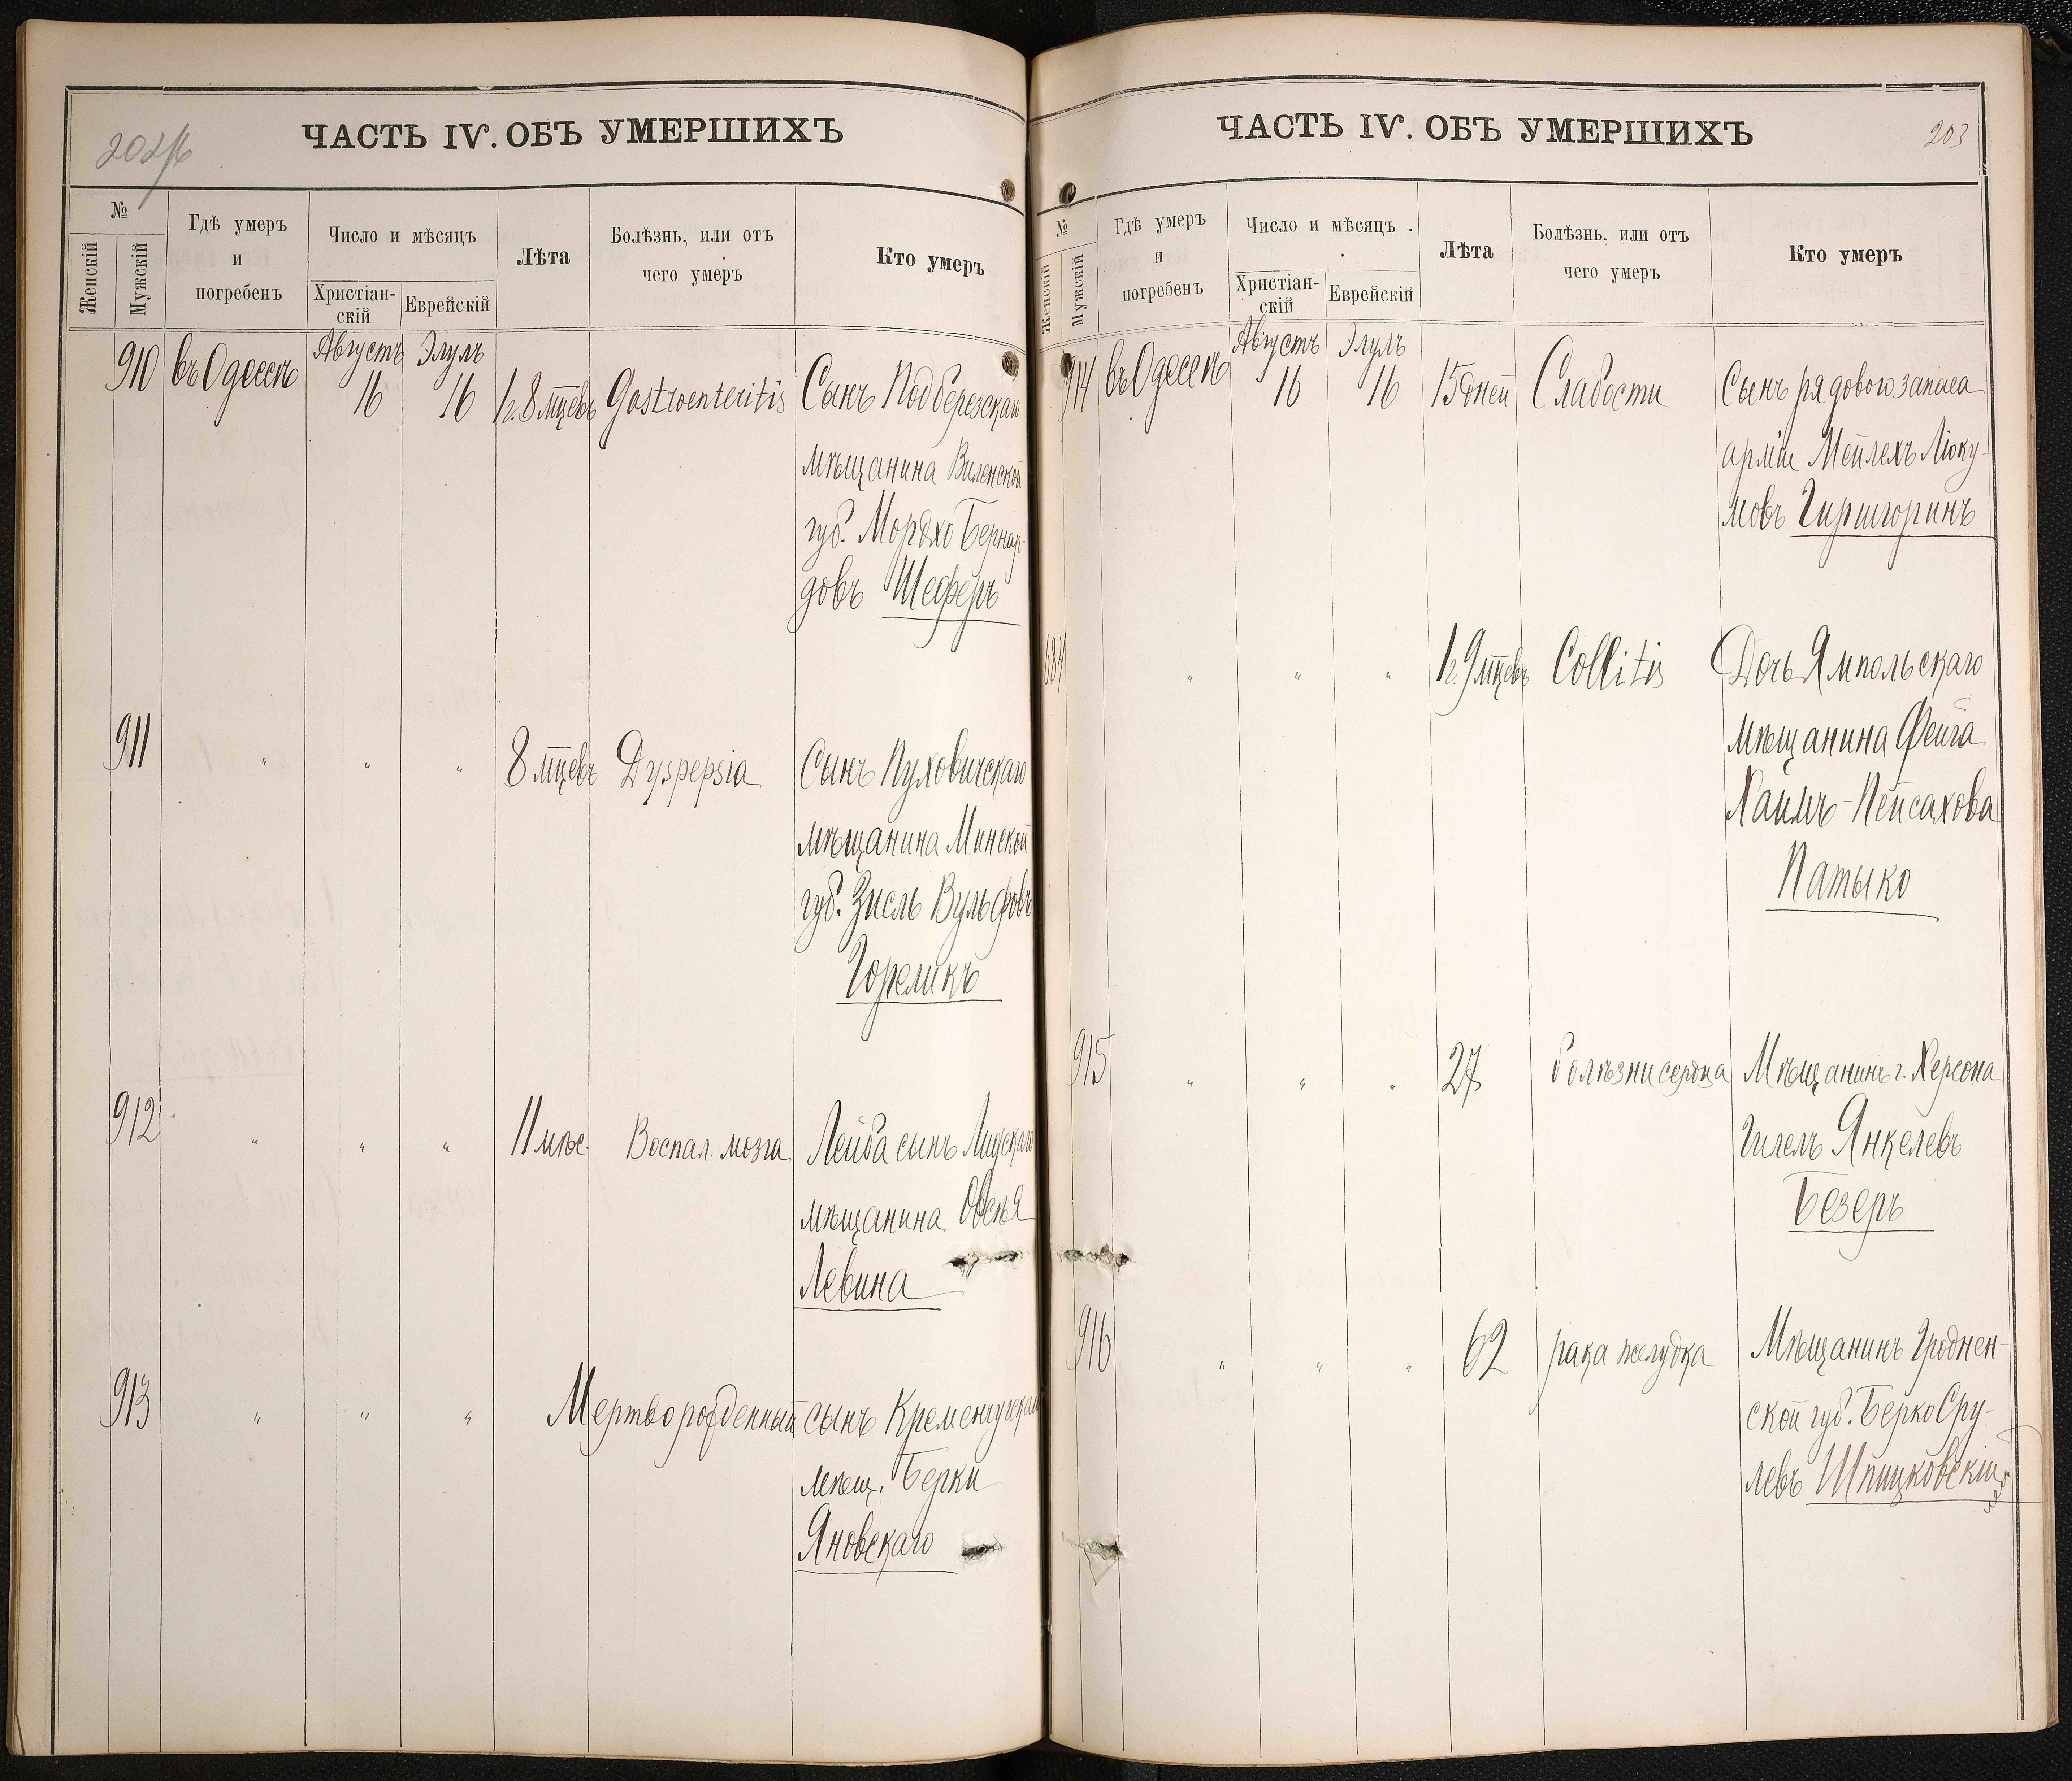 202 об
ЧАСТЬ IV. ОБЪ УМЕРШИХЪ
№
Женскій
Мужскій
Гдѣ умеръ
и
погребенъ
Число и мѣсяцъ
Христіан-
скій
Еврейскій
Лѣта
Болѣзнь, или отъ
чего умеръ
Кто умеръ
Августъ Элулъ
910 въ Одессѣ 16 16 1г. 8 мцевъ Gastroenteritis Сынъ Подберезскаго
мѣщанина Виленской
губ. Мордхо Бернар-
довъ Шеферъ
911 " " " 8 мцевъ Dyspepsia Сынъ Пуховичскаго
мѣщанина Минской
губ. Зисль Вульфовъ
Гореликъ
912 " " " 11 мѣс. Воспал. мозга Лейба сынъ Лидскаго
мѣщанина Овсѣя
Левина
913 " " " Мертворожденный сынъ Кременчугскаго
мѣщ. Берки
Яновскаго
ЧАСТЬ IV. ОБЪ УМЕРШИХЪ
203
№
Женскій
Мужскій
Гдѣ умеръ
и
погребенъ
Число и мѣсяцъ
Христіан-
скій
Еврейскій
Лѣта
Болѣзнь, или отъ
чего умеръ
Кто умеръ
Августъ Элулъ
914 въ Одессѣ 16 16 15 дней Слабости Сынъ рядового запаса
арміи Мейлехъ Ліоку-
мовъ Гиршгоринъ
684 " " " 1г. 9 мцевъ Collitis Дочь Ямпольскаго
мѣщанина Фейга
Хаимъ-Пейсахова
Патыко
915 " " " 27 болѣзни сердца Мѣщанинъ г. Херсона
Гилель Янкелевъ
Безеръ
916 " " " 62 рака желудка Мѣщанинъ Гроднен-
ской губ. Берко Сру-
левъ Шпицковскій